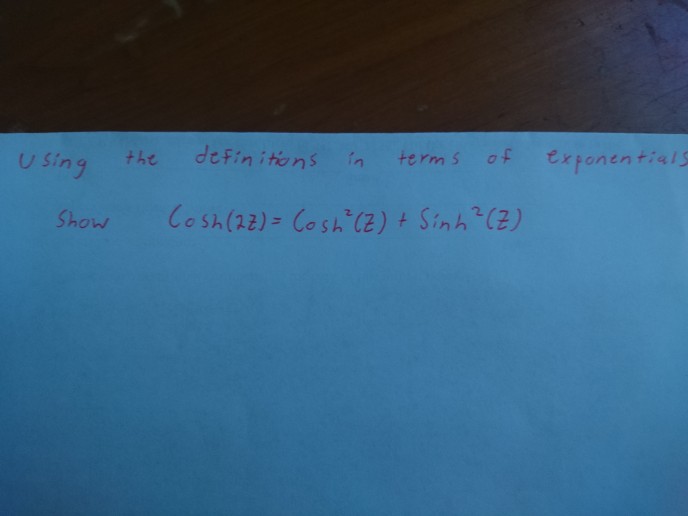 Using the definitions in terms of exponentials
Show Cosh(2Z) = Cosh²(Z) + Sinh²(Z)